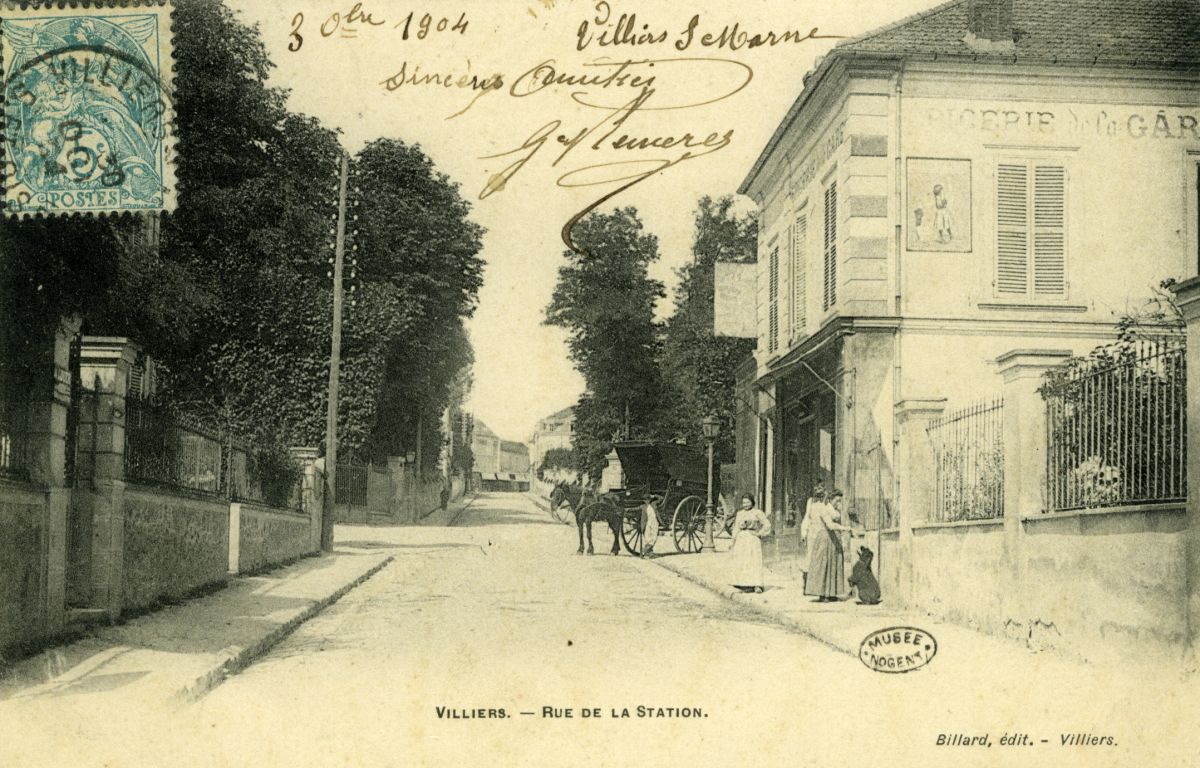 3 8bre 1904
Villiers S Marne
Sincères Amitiés
VILLIERS
5c
POSTES
PICERIE de la GAR
MUSÉE
NOGENT
VILLIERS. — RUE DE LA STATION.
Billard, édit. - Villiers.